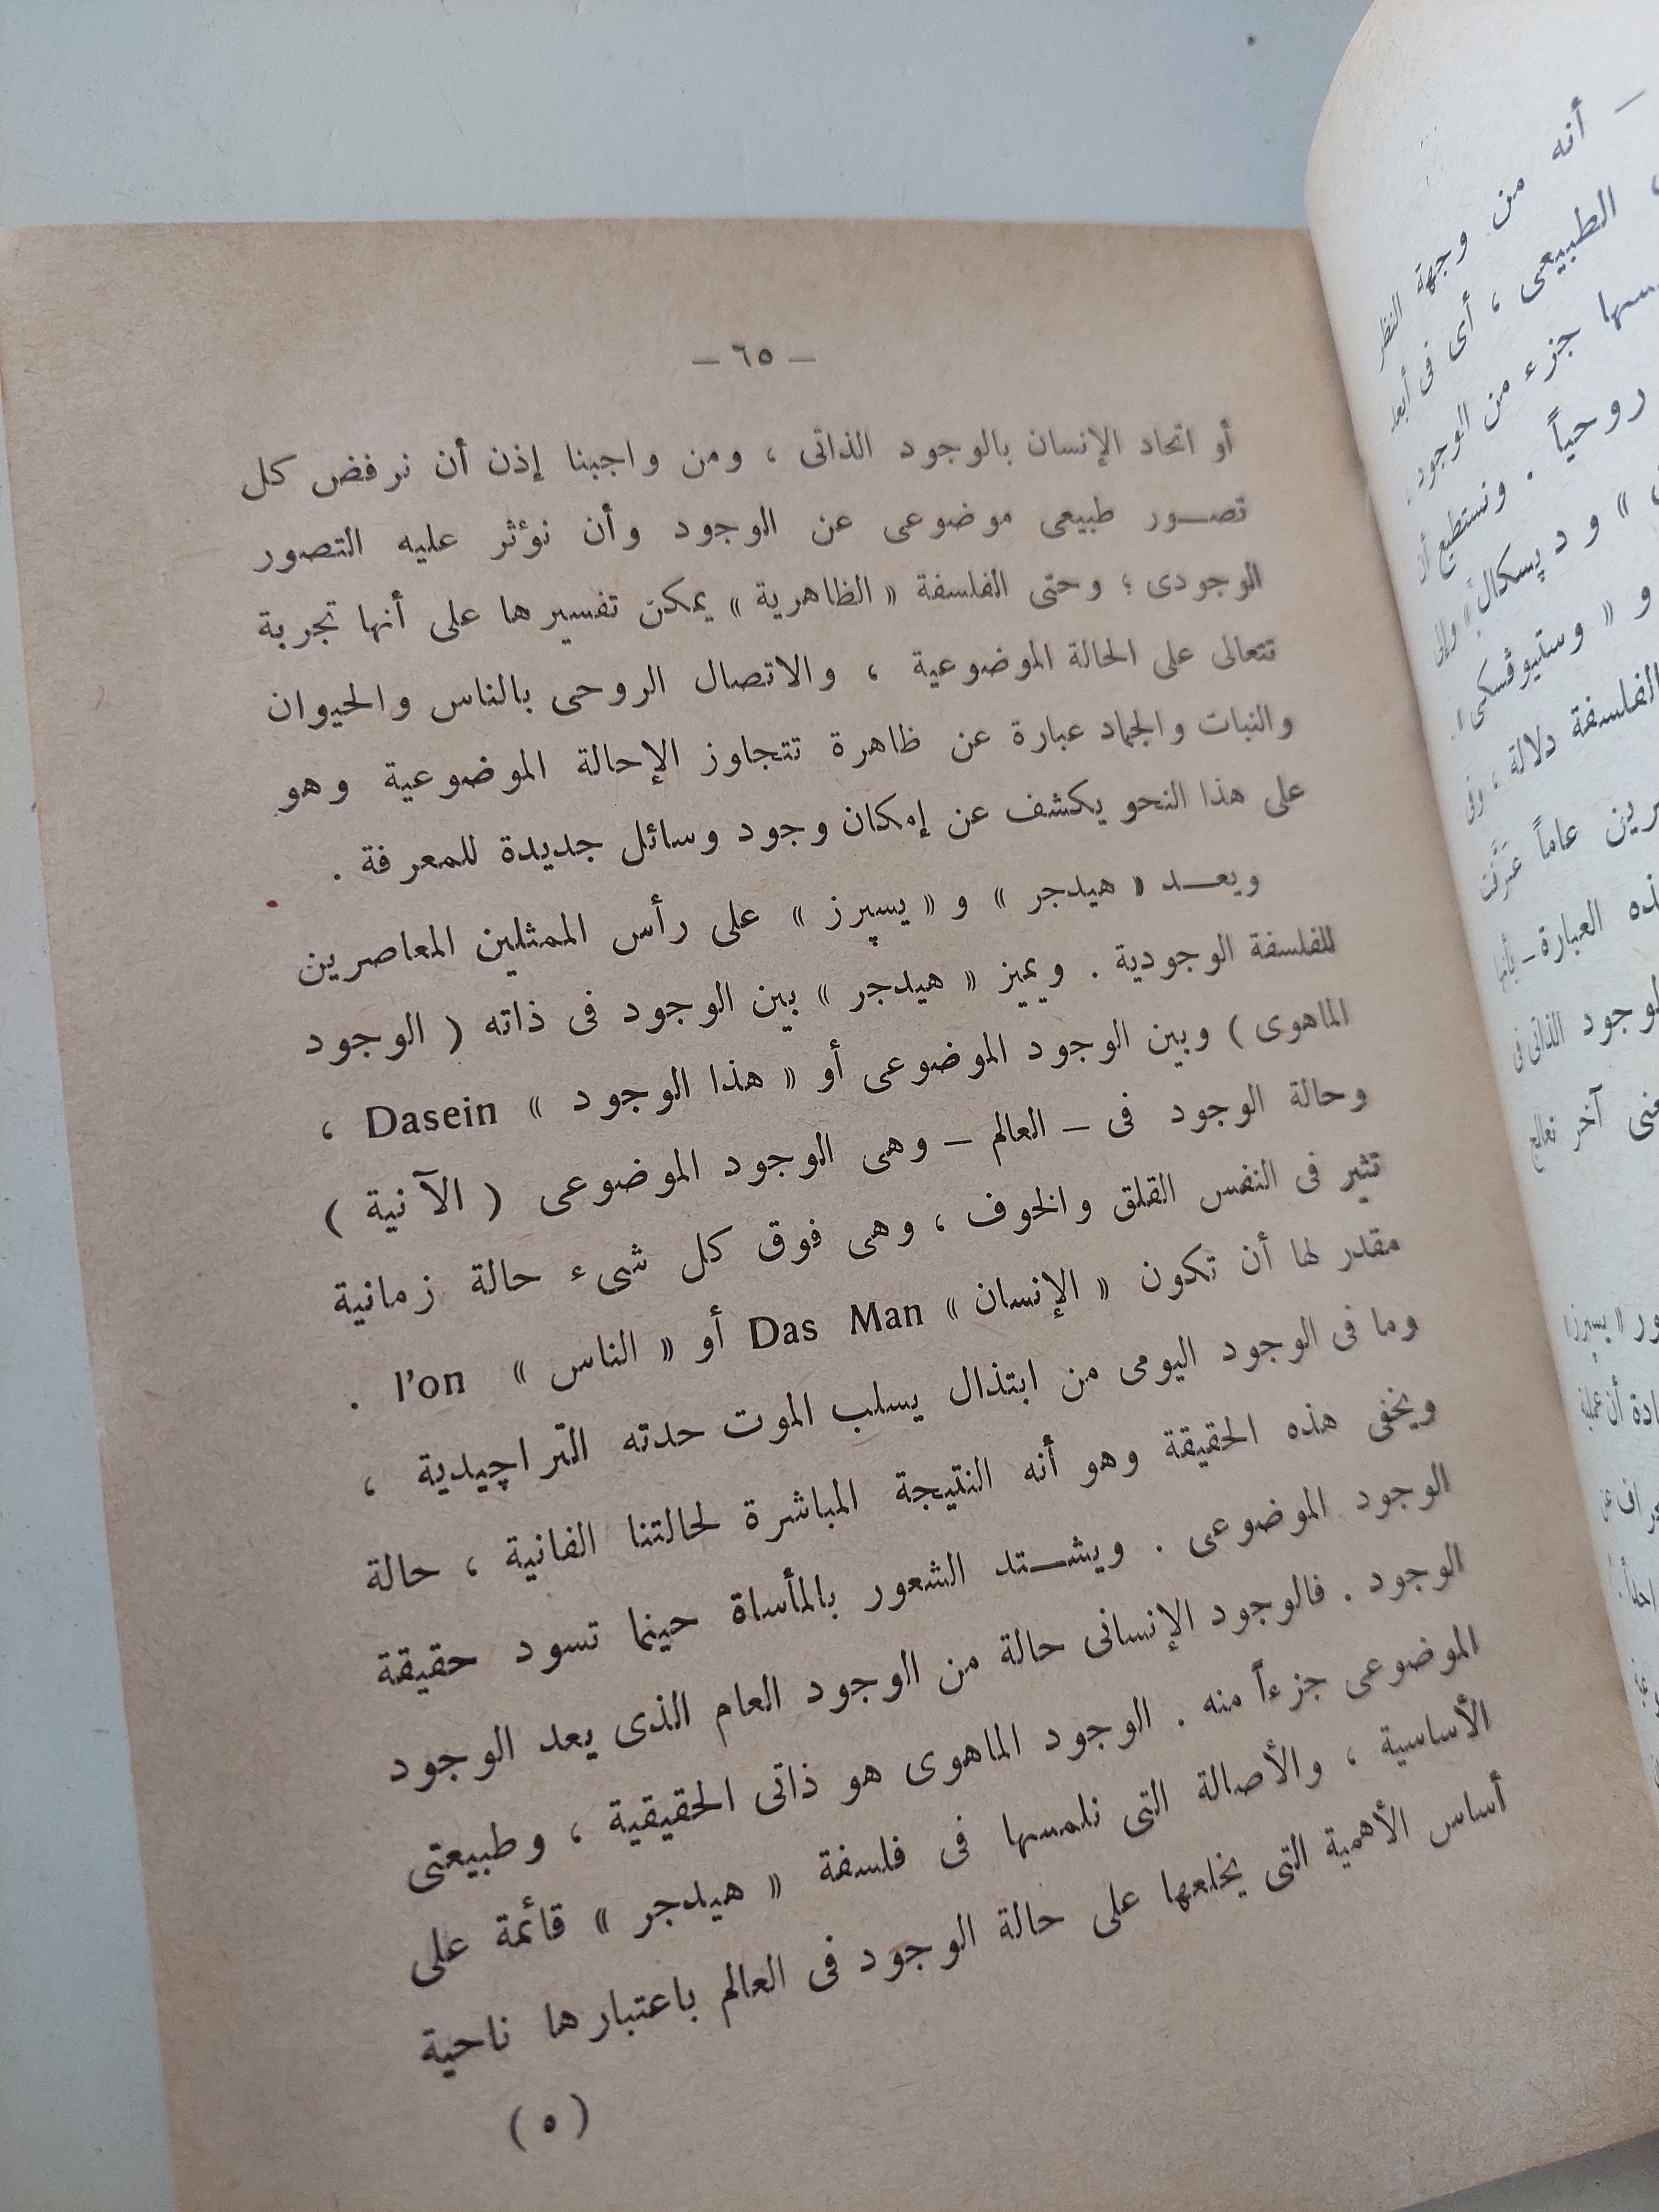 — ٦٥ —
أو اتحاد الإنسان بالوجود الذاتى ، ومن واجبنا إذن أن نرفض كل
تصور طبيعى موضوعى عن الوجود وأن نؤثر عليه التصور
الوجودى ؛ وحتى الفلسفة « الظاهرية » يمكن تفسيرها على أنها تجربة
تتعالى على الحالة الموضوعية ، والاتصال الروحى بالناس والحيوان
والنبات والجماد عبارة عن ظاهرة تتجاوز الإحالة الموضوعية وهو
على هذا النحو يكشف عن إمكان وجود وسائل جديدة للمعرفة .
ويعد « هيدجر » و « يسپرز » على رأس الممثلين المعاصرين
للفلسفة الوجودية . ويميز « هيدجر » بين الوجود فى ذاته ( الوجود
الماهوى ) وبين الوجود الموضوعى أو « هذا الوجود » Dasein ،
وحالة الوجود فى — العالم — وهى الوجود الموضوعى ( الآنية )
تثير فى النفس القلق والخوف ، وهى فوق كل شىء حالة زمانية
مقدر لها أن تكون « الإنسان » Das Man أو « الناس » l'on .
وما فى الوجود اليومى من ابتذال يسلب الموت حدته التراچيدية ،
ويخفى هذه الحقيقة وهو أنه النتيجة المباشرة لحالتنا الفانية ، حالة
الوجود الموضوعى . ويشتد الشعور بالمأساة حينما تسود حقيقة
الوجود . فالوجود الإنسانى حالة من الوجود العام الذى يعد الوجود
الموضوعى جزءاً منه . الوجود الماهوى هو ذاتى الحقيقية ، وطبيعتى
الأساسية ، والأصالة التى نلمسها فى فلسفة « هيدجر » قائمة على
أساس الأهمية التى يخلعها على حالة الوجود فى العالم باعتبارها ناحية
( ٥ )
— أنه من وجهة النظر
الطبيعى ، أى فى أبعد
جزء من الوجود
روحياً . ونستطيع أن
» و د پسكال » وإلى
و « وستيوفسكى »
الفلسفة دلالة ، وفى
عاماً عرَّفت
العبارة — بأنها
الذاتى فى
آخر تعالج
« يسپرز »